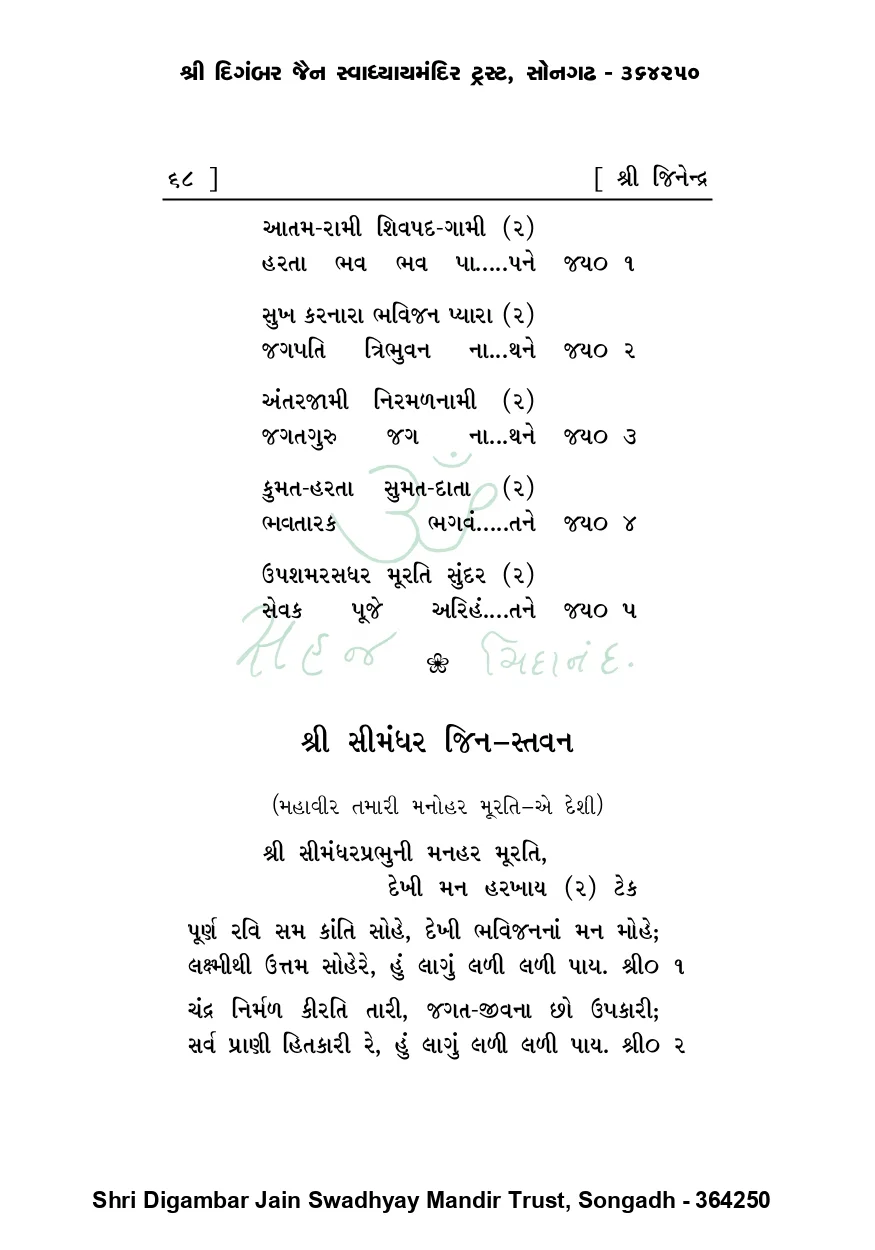 શ્રી દિગંબર જૈન સ્વાધ્યાયમંદિર ટ્રસ્ટ, સોનગઢ - ૩૬૪૨૫૦
૬૮ ] [ શ્રી જિનેન્દ્ર
આતમ-રામી શિવપદ-ગામી (૨)
હરતા ભવ ભવ પા.....પને જય૦ ૧
સુખ કરનારા ભવિજન પ્યારા (૨)
જગપતિ ત્રિભુવન ના...થને જય૦ ૨
અંતરજામી નિરમળનામી (૨)
જગતગુરુ જગ ના...થને જય૦ ૩
કુમત-હરતા સુમત-દાતા (૨)
ભવતારક ભગવં.....તને જય૦ ૪
ઉપશમરસધર મૂરતિ સુંદર (૨)
સેવક પૂજે અરિહં....તને જય૦ ૫
ૐ
સહજ ચિદાનંદ.
શ્રી સીમંધર જિન–સ્તવન
(મહાવીર તમારી મનોહર મૂરતિ–એ દેશી)
શ્રી સીમંધરપ્રભુની મનહર મૂરતિ,
દેખી મન હરખાય (૨) ટેક
પૂર્ણ રવિ સમ કાંતિ સોહે, દેખી ભવિજનનાં મન મોહે;
લક્ષ્મીથી ઉત્તમ સોહેરે, હું લાગું લળી લળી પાય. શ્રી૦ ૧
ચંદ્ર નિર્મળ કીરતિ તારી, જગત-જીવના છો ઉપકારી;
સર્વ પ્રાણી હિતકારી રે, હું લાગું લળી લળી પાય. શ્રી૦ ૨
Shri Digambar Jain Swadhyay Mandir Trust, Songadh - 364250